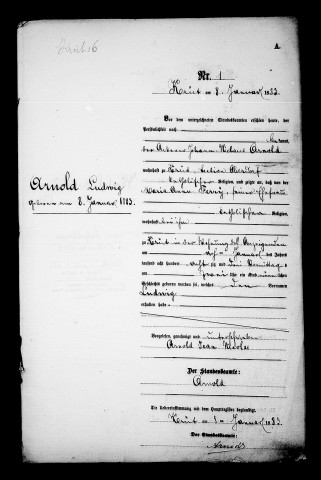 A.
Nr. 1
Krüt am 8. Januar 1883.
Vor dem unterzeichneten Standesbeamten erschien heute, der
Persönlichkeit nach
kannt,
der Ackerer Johann Nicolaus Arnold
wohnhaft zu Krüt, Section Oberdorf
katholischer Religion, und zeigte an, daß von der
Maria Anna Ferry, seiner Ehefrau
katholischer Religion,
wohnhaft bei ihm
zu Krüt in der Wohnung des Anzeigenden
am Januar des Jahres
tausend acht hundert achtzig und drei Vormittags
um zwei Uhr ein Kind männlichen
Geschlechts geboren worden sei, welches den Vornamen
Ludwig
erhalten habe
Arnold Ludwig
geboren am 8. Januar 1883.
Vorgelesen, genehmigt und unterschrieben
Arnold Jean Nicolas
Der Standesbeamte:
Arnold
Die Uebereinstimmung mit dem Hauptregister beglaubigt.
Krüt am 8. Januar 1883.
Der Standesbeamte:
Arnold